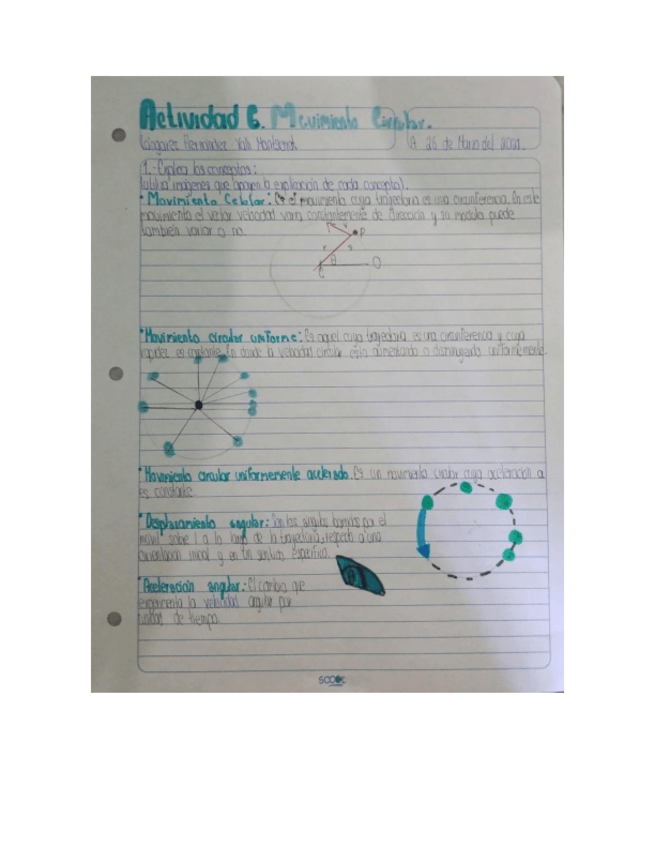 Actividad 6. Movimiento Circular.
Hernández
A 26 de Marzo del 2021.
1.- Explica los conceptos:
imágenes que apoyen la explicación de cada concepto).
• Movimiento Celular: Es el movimiento cuya trayectoria es una circunferencia. En este
movimiento el vector velocidad varia constantemente de dirección y su modulo puede
también variar o no.
v
P
r
s
θ
C
O
• Movimiento circular uniforme: Es aquel cuya trayectoria es una circunferencia y cuya
rapidez es constante. En donde la velocidad circular esta aumentando o disminuyendo uniformemente.
• Movimiento circular uniformemente acelerado. Es un movimiento circular cuya aceleración α
es constante.
• Desplazamiento angular: Son los angulos barridos por el
movil sobre la lo largo de la trayectoria, respecto a una
orientación inicial y en un sentido especifico.
θ
• Aceleración angular: El cambio que
experimenta la velocidad angular por
unidad de tiempo.